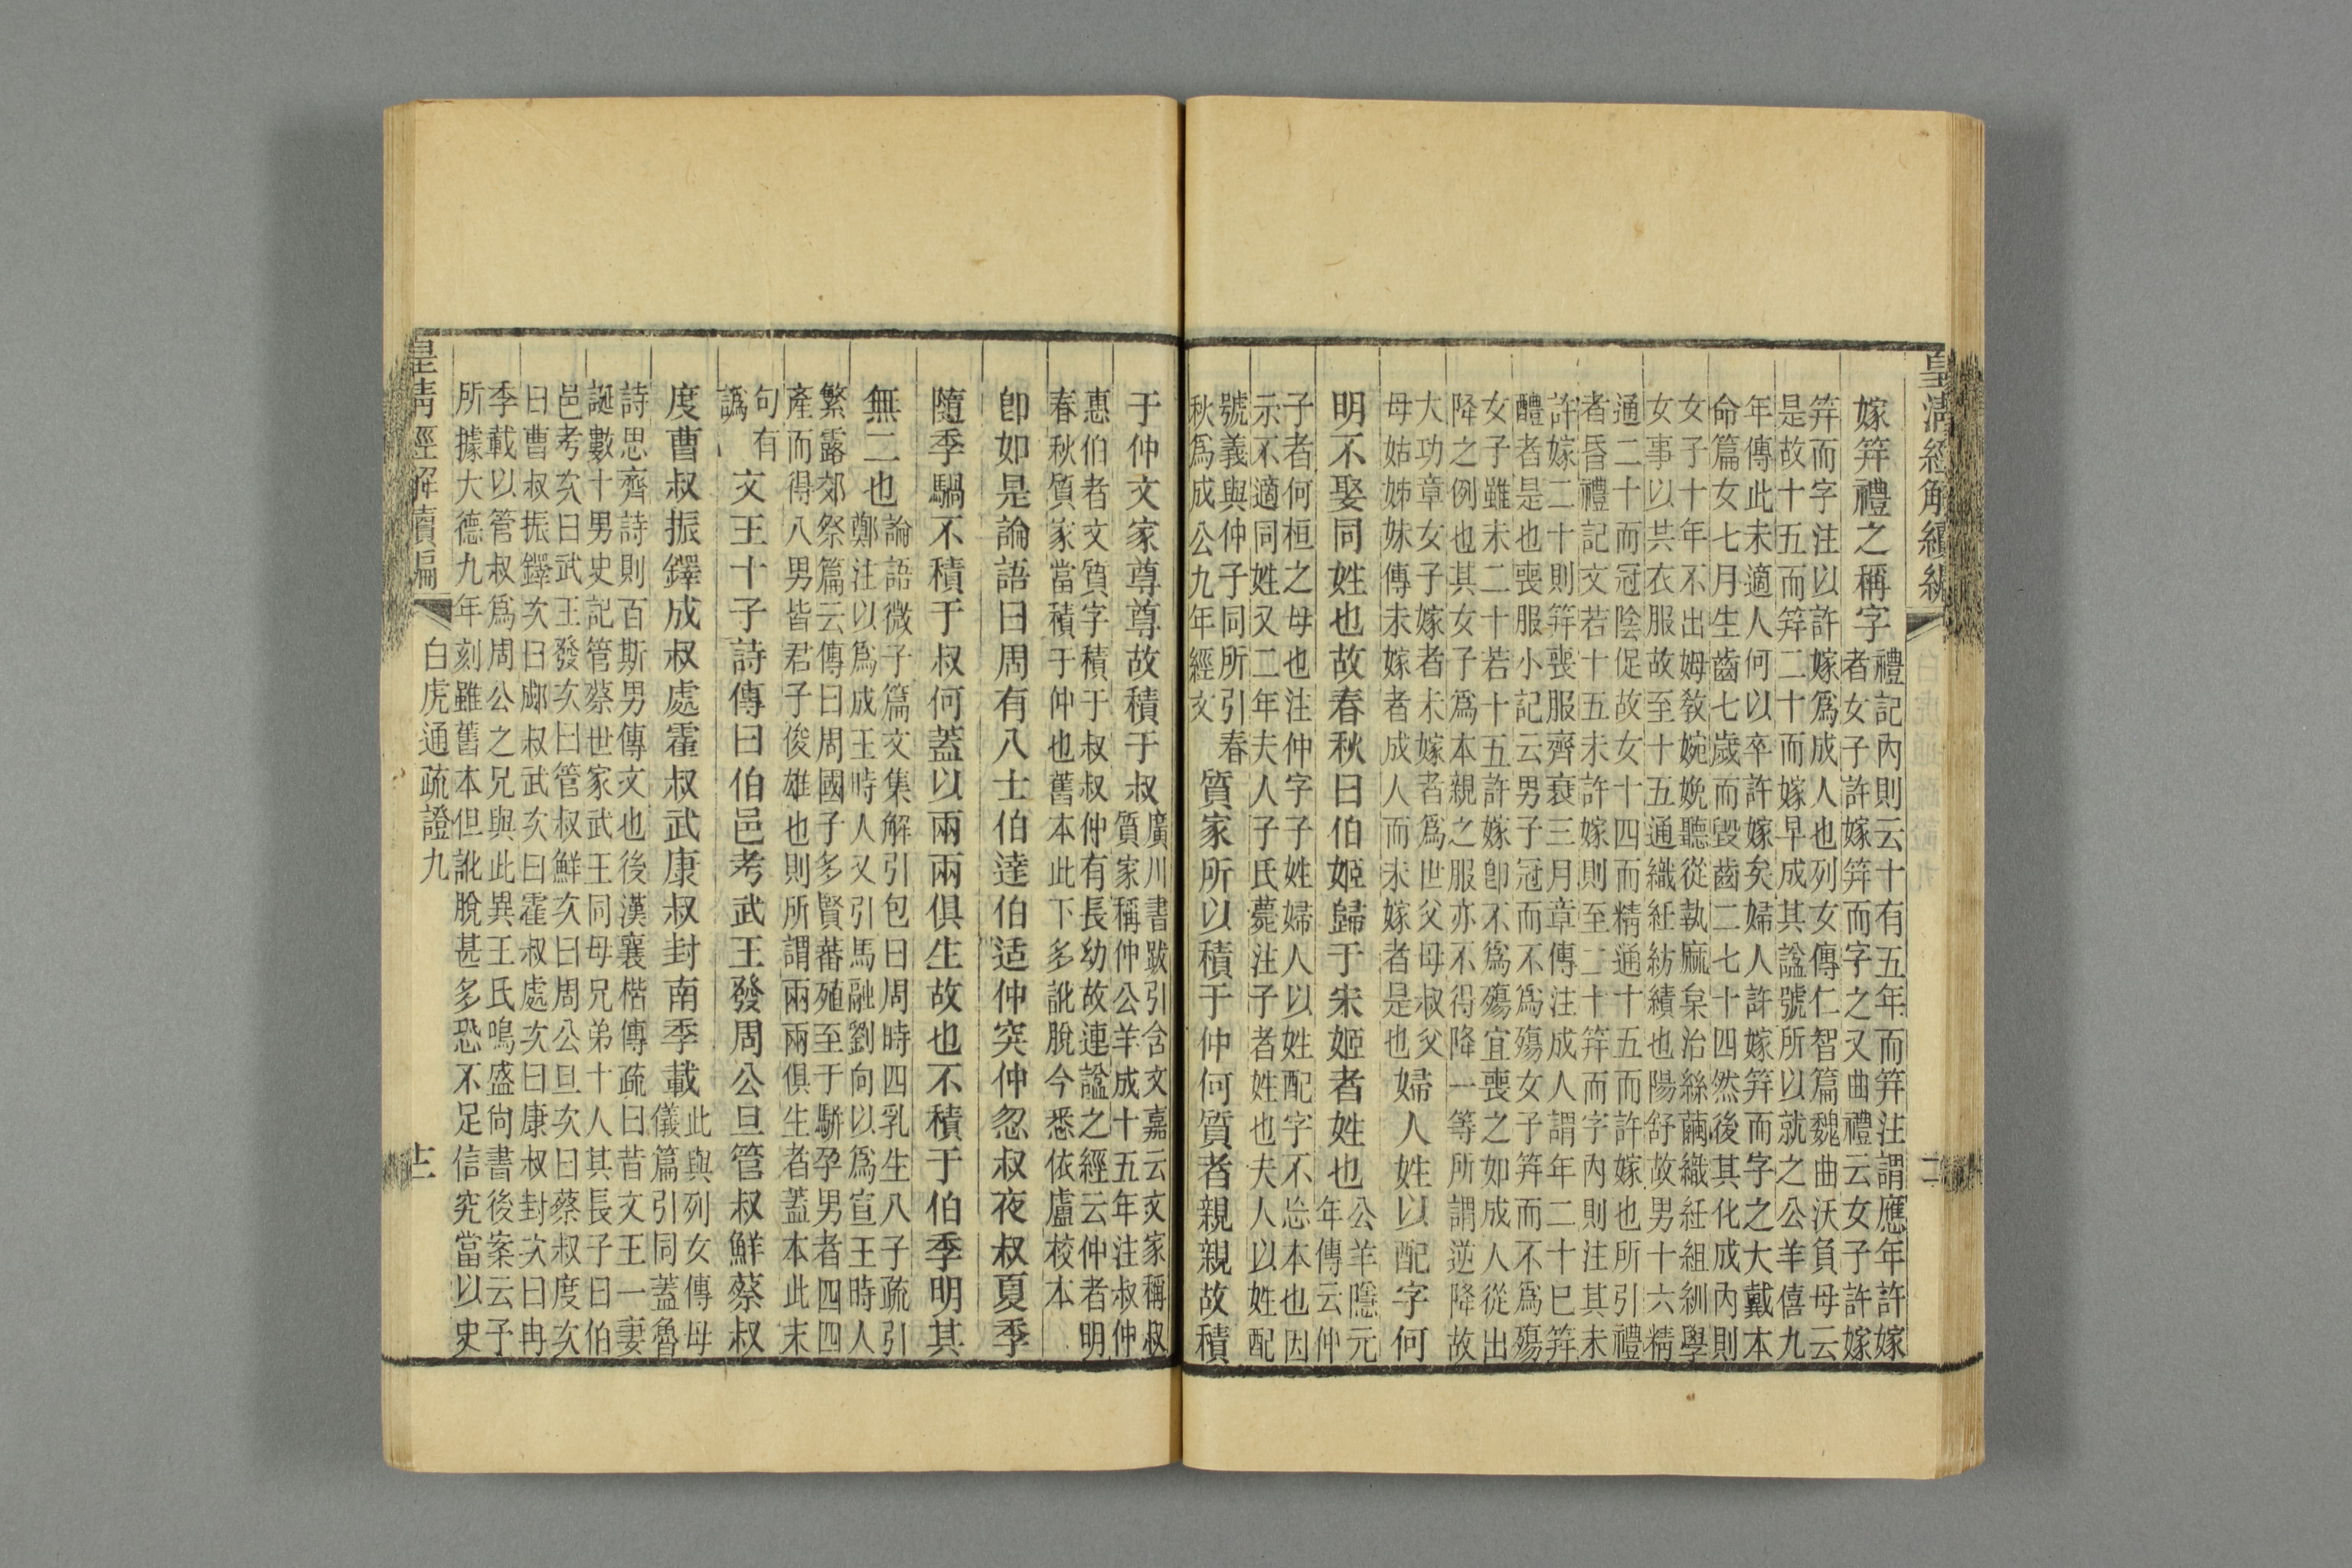 皇清經解續編
嫁筓禮之稱字
禮記內則云十有五年而筓注謂應年許嫁
者女子許嫁筓而字之又曲禮云女子許嫁
筓而字注以許嫁爲成人也列女傳仁智篇魏曲沃負母云
是故十五而筓二十而嫁早成其諡號所以就之公羊僖九
年傳此未適人何以卒許嫁矣婦人許嫁筓而字之大戴本
命篇女七月生齒七歲而毀齒二七十四然後其化成內則
女子十年不出姆敎婉娩聽從執麻枲治絲繭織紝組紃學
女事以共衣服故至十五通織紝紡績也陽舒故男十六精
通二十而冠陰促故女十四而精通十五而許嫁也所引禮
者昏禮記文若十五未許嫁則至二十筓而字內則注其未
許嫁二十則筓喪服齊衰三月章傳注成人謂年二十已筓
醴者是也喪服小記云男子冠而不爲殤女子筓而不爲殤
女子雖未二十若十五許嫁卽不爲殤宜喪之如成人從出
降之例也其女子爲本親之服亦不得降一等所謂逆降故
大功章女子嫁者未嫁者爲世父母叔父
母姑姊妹傳未嫁者成人而未嫁者是也
婦人姓以配字何
明不娶同姓也故春秋曰伯姬歸于宋姬者姓也
公羊隱元
年傳云仲
子者何桓之母也注仲字子姓婦人以姓配字不忘本也因
示不適同姓又二年夫人子氏薨注子者姓也夫人以姓配
號義與仲子同所引春
秋爲成公九年經文
質家所以積于仲何質者親親故積
于仲文家尊尊故積于叔
廣川書跋引含文嘉云文家稱叔
質家稱仲公羊成十五年注叔仲
惠伯者文質字積于叔叔仲有長幼故連諡之經云仲者明
春秋質家當積于仲也舊本此下多訛脫今悉依盧校本
卽如是論語曰周有八士伯達伯适仲突仲忽叔夜叔夏季
隨季騧不積于叔何蓋以兩兩俱生故也不積于伯季明其
無二也
論語微子篇文集解引包曰周時四乳生八子疏引
鄭注以爲成王時人又引馬融劉向以爲宣王時人
繁露郊祭篇云傳曰周國子多賢蕃殖至于駢孕男者四四
產而得八男皆君子俊雄也則所謂兩兩俱生者蓋本此末
句有
譌
文王十子詩傳曰伯邑考武王發周公旦管叔鮮蔡叔
度曹叔振鐸成叔處霍叔武康叔封南季載
此與列女傳母
儀篇引同蓋魯
詩思齊詩則百斯男傳文也後漢襄楷傳疏曰昔文王一妻
誕數十男史記管蔡世家武王同母兄弟十人其長子曰伯
邑考次曰武王發次曰管叔鮮次曰周公旦次曰蔡叔度次
曰曹叔振鐸次曰郕叔武次曰霍叔處次曰康叔封次曰冉
季載以管叔爲周公之兄與此異王氏鳴盛尙書後案云予
所據大德九年刻雖舊本但訛脫甚多恐不足信究當以史
皇清經解續編
白虎通疏證九